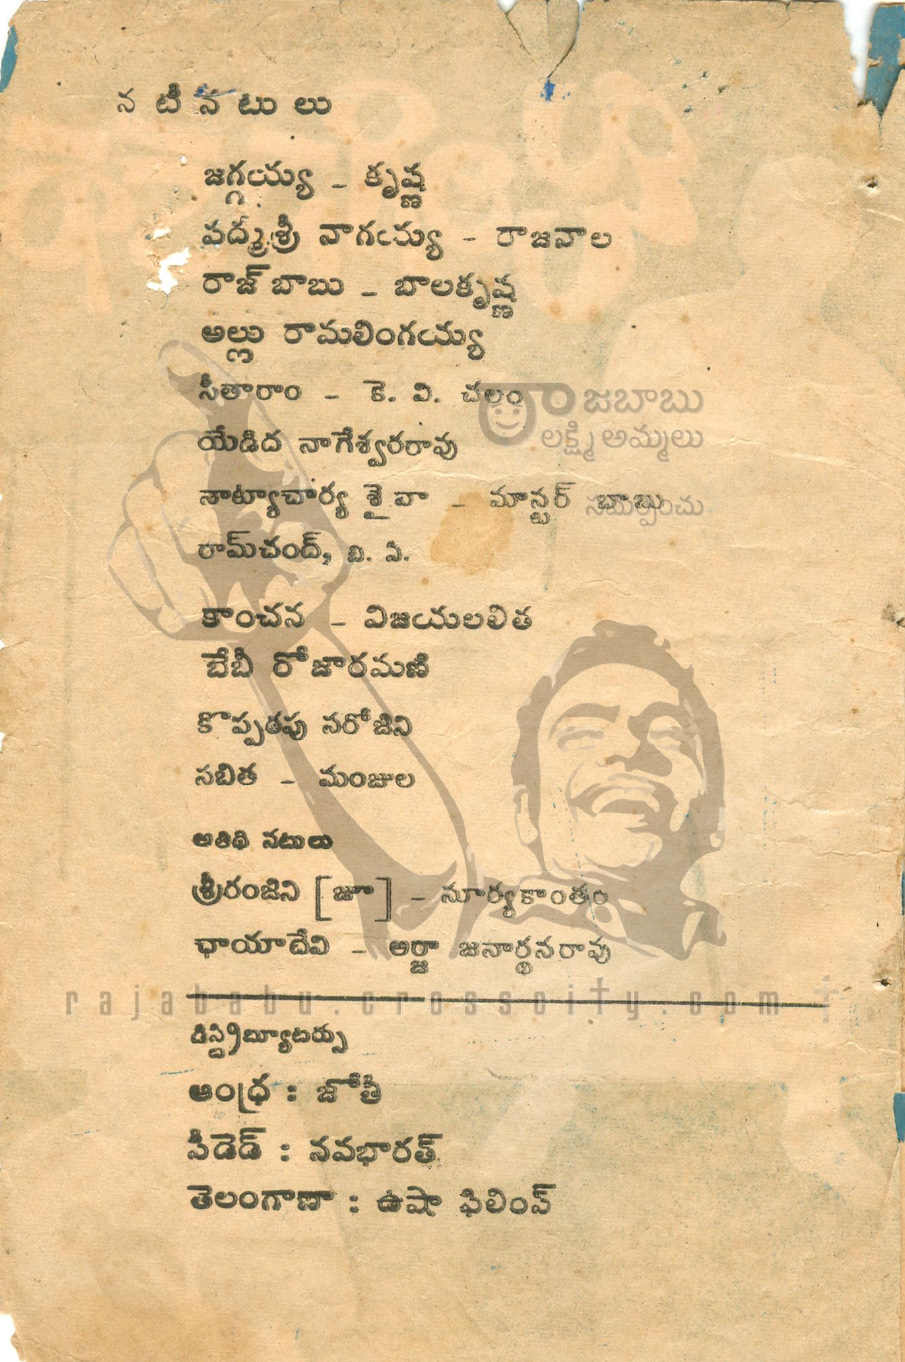 న టీ న టు లు
జగ్గయ్య - కృష్ణ
పద్మశ్రీ నాగయ్య - రాజనాల
రాజ్ బాబు - బాలకృష్ణ
అల్లు రామలింగయ్య
సీతారాం - కె. వి. చలం
రాజబాబు
యేడిద నాగేశ్వరరావు
లక్ష్మి అమ్మలు
నాట్యాచార్య శైవా - మాస్టర్ బాబు
సమర్పించు
రామ్‌చంద్, బి. ఏ.
కాంచన - విజయలలిత
బేబీ రోజారమణి
కొప్పరపు సరోజిని
సబిత - మంజుల
అతిథి నటులు
శ్రీరంజిని [జూ] - సూర్యకాంతం
ఛాయాదేవి - అర్జా జనార్థనరావు
rajababu.crosscity.com
డిస్ట్రిబ్యూటర్సు
ఆంధ్ర : జ్యోతీ
సీడెడ్ : నవభారత్
తెలంగాణా : ఉషా ఫిలింస్